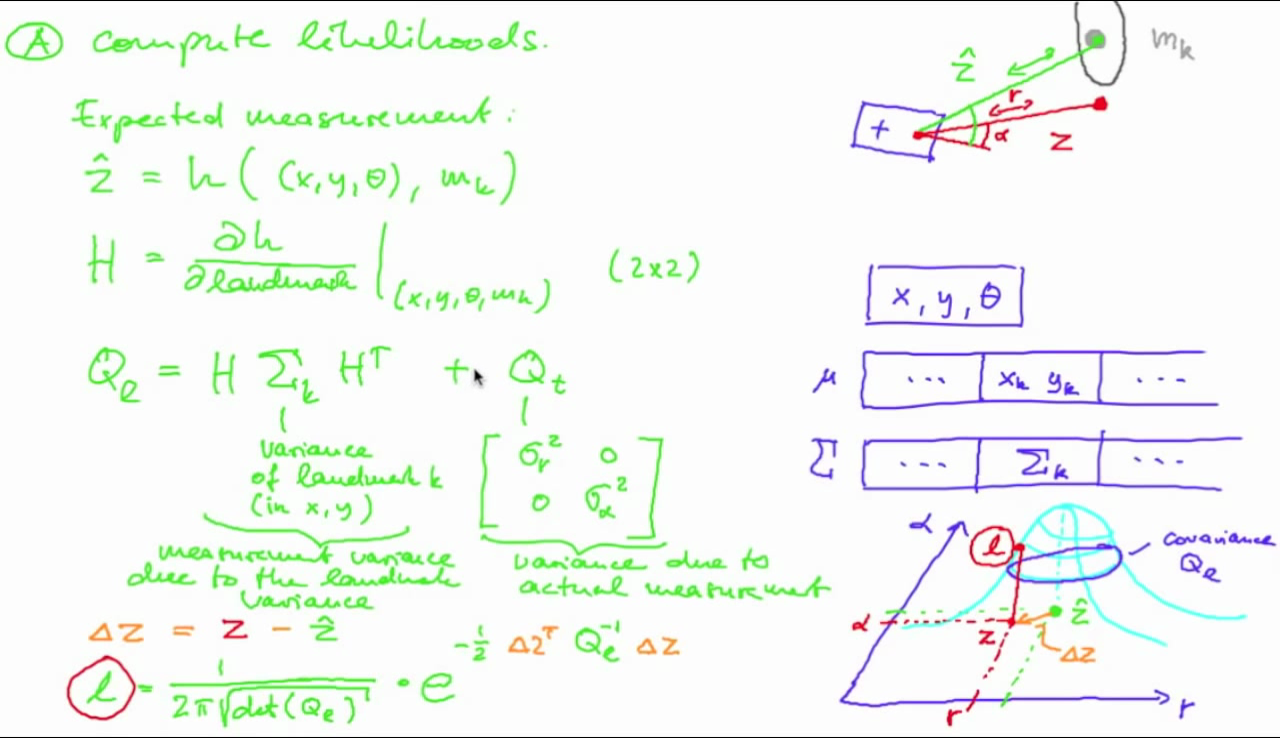 Ⓐ compute likelihoods.
Expected measurement:
ẑ = h((x, y, θ), m_k)
H = ∂h / ∂landmark |_(x, y, θ, m_k) (2x2)
Q_ℓ = H Σ_k H^T + Q_t
variance
of landmark k
(in x, y)
σ_r² 0
0 σ_α²
measurement variance
due to the landmark
variance
variance due to
actual measurement
Δz = z - ẑ
ℓ = 1 / (2π √det(Q_ℓ)) · e^(-½ Δz^T Q_ℓ^-1 Δz)
m_k
ẑ
r
α
z
+
x, y, θ
μ ... x_k y_k ...
Σ ... Σ_k ...
α
ℓ
covariance
Q_ℓ
α
z
ẑ
Δz
r
r